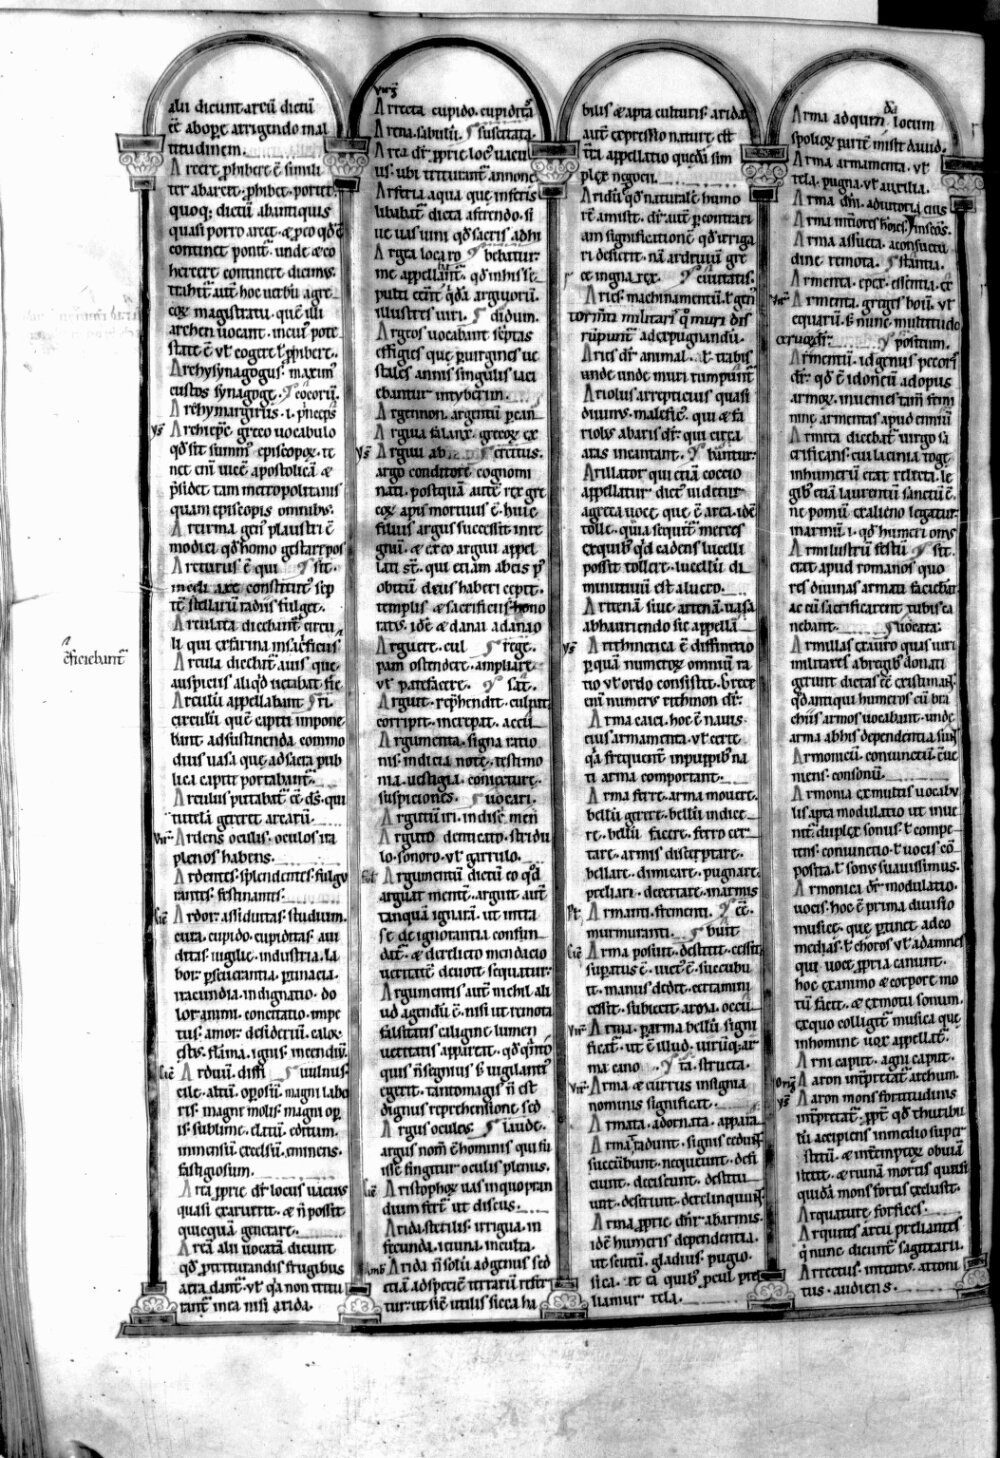 alii dicunt arcū dictū
ēē ab opere arrigendo mul
titudinem.
Arcere, phibere ē. simili
ter abarcet. phibet. porcet
quoq; dictū ab antiquis
quasi porro arcet. & pco qd̄ ē
continet ponit. unde & co
hercere continere dicimꝰ.
ttahit aut hoc uerbū a gre
cox magistratu. quē illi
archen uocant. in cuiꝰ pote
state ē ul cogere ł phibere.
Archysynagogus. maximꝰ
custos synagogę. cocorū.
Archymargirus. i. pnceps
Archiepc̄ greco uocabulo
qd̄ sit summꝰ episcopox. te
net eni uicē apostolicā &
p̄sidet tam metropolitanis
quam episcopis omnibꝰ.
Arcirma genꝰ plaustri ē
modici qd̄ homo gestar pos
Arcturus ē qui sit.
inedi axe constitutꝰ sep
tē stellarū radiis fulget.
Arculata dicebant circu
li qui ex farina in sacrificiis
Arcula dicebat auis que
auspiciis aliqd̄ uetabat fie
Arculū appellabant ri.
circulū quē capiti impone
bant ad sustinenda commo
dius uasa que ad sacra pub
lica capite portabant.
Arculus putabat ēē dꝰ. qui
tutelā gereret arcarū.
Ardens oculis. oculos ita
plenos habens.
Ardentes. splendentes. fulgu
rantes. festinantes.
Ardor. assiduitas. studium.
cura. cupido. cupiditas. aui
ditas. uigilię. industria. la
bor. pseuerantia. ptinacia.
iracundia. indignatio. do
lor animi. concitatio. impe
tus. amor. desideriū. calor.
estꝰ. flāma. ignis. incendiū.
Arduū. diffi uulnus.
cile. altū. oposiū. magni labo
ris. magni molis. magni op
is. sublime. elatū. editum.
immensū. excelsū. eminens.
fastigiosum.
Area pprie dr̄ locus uacuus
quasi exaruerit. & n̄ possit
quicquā generare.
Areā alii uocatā dicunt
qd̄ ptriturandis frugibus
atra dant. ul qa non tritu
rant in ea nisi arida.
efficiebant
Arrecta cupido. cupiditas
Arena. sabulū. suscitata.
Area dr̄ pprie locꝰ uacuꝰ
us. ubi triturant annone
Arferia aqua que inferis
libabat dicta a ferendo. si
ue uas uini qd̄ sacris adhi
Argea loca ro bebatur.
me appellant. qd̄ in his se
pulti eent qd̄ā argiuorū
illustres uiri. diduin.
Argeos uocabant scirpeas
effigies que p uirgines ue
stales annis singulis iaci
ebantur in tyberim.
Argennon. argentū pcan
Argiua falanx. grecox ex
Argiui ab ercitus.
argo conditore cognomi
nati. postquā aut rex gre
cox apis mortuus ē. huic
filius argus successit in re
gnū. & ex eo argiui appel
lati st̄. qui etiam ab eis p
obitū deus haberi cepit.
templis & sacrificiis hono
ratꝰ. idē & danai a danao
Arguere. cul rege.
pam ostendere. ampliare
ul patefacere. sat.
Arguit. rephendit. culpat.
corripit. increpat. accu
Argumenta. signa ratio
nis. indicia note. testimo
nia. uestigia. coniecture.
suspiciones. uocari.
Argutū iri. in disc̄ men̄
Arguto denticato. stridu
lo. sonoro. ul garrulo.
Argumentū dictū eo qd̄
arguat mentē. arguit aut
tanquā ignarā. ut intra
se de ignorantia confun
dat. & derelicto mendacio
ueritatē deuote sequatur.
Argumentis aut nichil ali
ud agendū ē. nisi ut remota
falsitatis caligine lumen
ueritatis appareat. qd̄ qnto
quis n̄ segnius s; uigilantiꝰ
egerit. tanto magis n̄ est
dignus reprehensione sed
Argus oculeꝰ. laude.
argus nom̄ ē hominis qui fu
isse fingitur oculis plenus.
Aristophor uas in quo pran
dium fert ut discus.
Arida. sterilis. irrigua. in
fecunda. ieiuna. inculta.
Arida n̄ solū ad genus sed
etiā ad speciē terrarū refer
tur. ut sic utilis sicca ha
bilis & apta culturis. arida
aut expressio nature est
tra appellatio quedā sim
plex negocii.
Aridū qd̄ naturalē humo
rē amisit. dr̄ aut p contrari
am significationē qd̄ irriga
ri desierit. nā arduuū gre
ce ingna rex. ciuitatis.
Aries. machinamentū. ł genꝰ
tormenti militari qo muri dis
rūpunt ad expugnandū.
Aries dr̄ animal. ł trabis
unde unde muri rumpunt
Ariolus arrepticius quasi
diuinꝰ. maleficꝰ. qui & fa
riolꝰ ab aris dr̄. qui circa
aras incantant. buntur.
Arillator qui etiā coccio
appellatur dictꝰ uidetur
a greca uoce que ē area. idē
tolle. quia sequit merces
ex quibꝰ qd̄ cadens lucelli
posset tollere. lucellū di
minutiuū est a lucro.
Artenā siue artenā uasa
ab hauriendo sic appellā
Arithmetica ē diffinitio
p quā numerox omniū ra
tio ul ordo consistit. grece
eni numerꝰ rithmon dr̄.
Arma eaica. hoc ē nauis.
eius armamenta. ul certe
qa frequent in puppibꝰ na
ti arma comportant.
Arma ferre. arma mouere.
bellū gerere. bellū indice
re. bellū facere. ferro cer
tare. armis disceptare.
bellare. dimicare. pugnare.
preliari. decertare. in armis
Armanti. frementi. ēē.
murmuranti. buit
Arma posuit. destitit. cessit
supatus ē. uictꝰ ē. succubu
it. manus dedit. certamini
cessit. subiecit arma. occu
Arma. parma. bellū signi
ficat. ut ē illud. uirūq; ar
ma cano. ta. structa.
Arma & currus insignia
nominis significat.
Armata. adornata. appara
Arma tradunt. signis cedunt.
succūbunt. nequeunt. defi
ciunt. deciscunt. destitu
unt. deserunt. derelinquunt.
Arma pprie dnr̄ ab armis.
idē humeris dependentia
ut scutū. gladius. pugio.
sica. ut ea quibꝰ pcul pre
liamur tela.
Arma ad quem locum
spolior patrē misit dauid.
Arma armamenta. ul
tela. pugna. ul auxilia.
Arma dn̄i. adiutoria eius
Arma interiores hoīes. inseōs.
Arma assueta. a consuetu
dine remota. stantia.
Armenta. eper. essentia. ex
Armenta. greges boū. ul
equarū. s; nunc multitudo
ceruox dr̄. positum.
Armentū. id genus pecoris
dr̄. qd̄ ē idoneū ad opus
armor. inuenies tam̄ femi
ninę armentas apud enniū
Armita dicebat uirgo sa
crificans. cui lacinia togę
in humerū erat reiecta. le
gibꝰ etiā laurentū sanctū ē.
ne pomū ex alieno legatur
in armū. i. qd̄ humeri onꝰ
Armilustrū festū sit.
erat apud romanos quo
res diuinas armati faciebāt
ac cū sacrificarent tubis ca
nebant. uocata.
Armillas ex auro quas uiri
militares ab regibꝰ donati
gerunt dictas eē existimat.
qd̄ antiqui humeros cū bra
chiis armos uocabant. unde
arma ab his dependentia sunt
Armonicū. coniunctū. cue
niens. consonū.
Armonia ex multis uocabu
lis apta modulatio ut inue
nit. duplex sonus. ł compe
tens. coniunctio ł uocis cō
posita. ł sonꝰ suauissimus.
Armonica dr̄ modulatio.
uocis. hoc ē prima diuisio
musicę. que ptinet ad eo
medias. ł choros ul ad amnes
qui uoce ppria canunt.
hoc ex animo & corpore mo
tū facit. & ex motu sonum.
ex quo colligit musica que
in homine uox appellat.
Arni caput. agni caput.
Aaron intpretat archum.
Aaron mons fortitudinis
intpretat. ppt qd̄ thuribu
lū accipiens in medio super
stitū. & intēmptox obuiā
stetit. & ruinā mortis quasi
quidā mons fortis exclusit.
Arquature. forfices.
Arquites. arcu preliantes
q nunc dicunt sagittarii.
Arrectus. intentꝰ. attoni
tus. audiens.